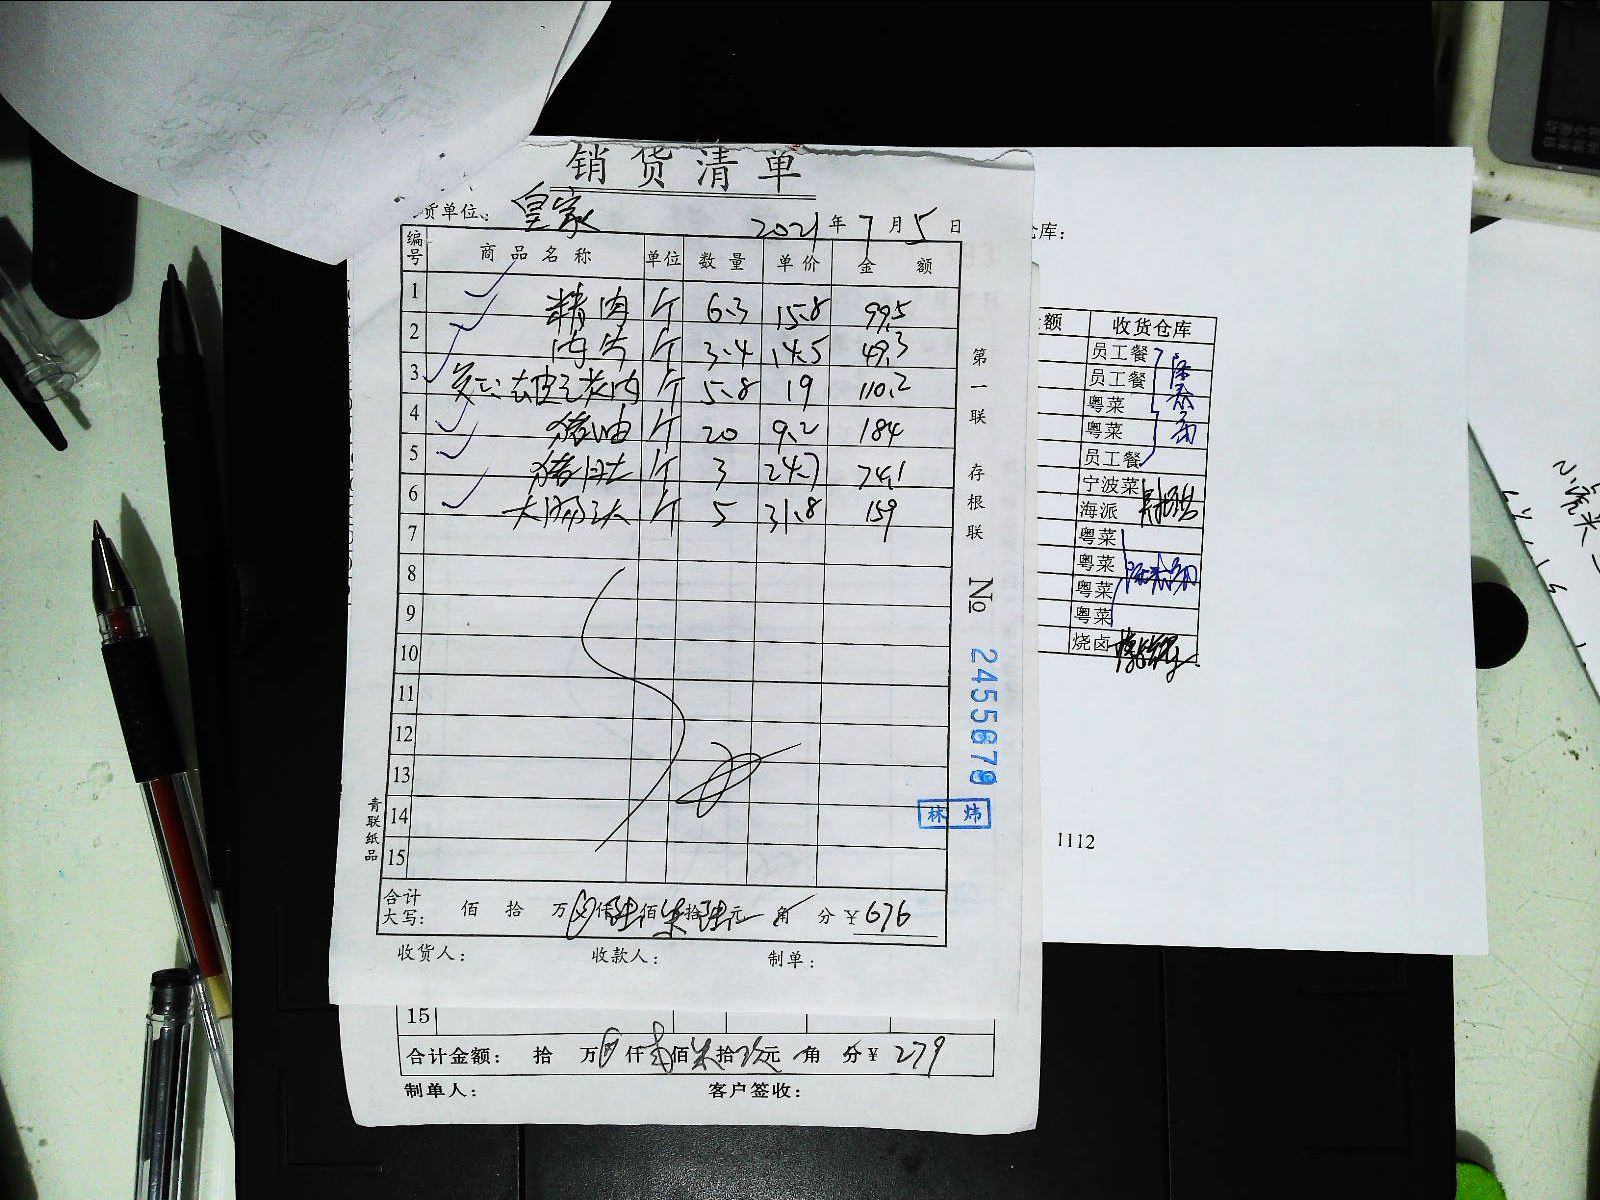 销货清单
货单位: 皇家
2021年7月5日
编号 商品名称 单位 数量 单价 金额
1 精肉 斤 6.3 15.8 99.5
2 肉片 斤 3.4 14.5 49.3
3 去皮 肉 斤 5.8 19 110.2
4 猪油 斤 20 9.2 184
5 猪肚 斤 3 24.7 74.1
6 大肠头 斤 5 31.8 159
7
8
9
10
11
12
13
14
15
合计大写: 佰 拾 万 仟陆佰柒拾陆元 角 分 ¥676
收货人: 收款人: 制单:
第一联 存根联
No 2455679
林炜
青联纸品
15
合计金额: 拾 万 仟 佰柒拾玖元 角 分 ¥ 279
制单人: 客户签收:
仓库:
额 收货仓库
员工餐
员工餐
粤菜
粤菜
员工餐
宁波菜
海派
粤菜
粤菜
粤菜
粤菜
烧卤
1112